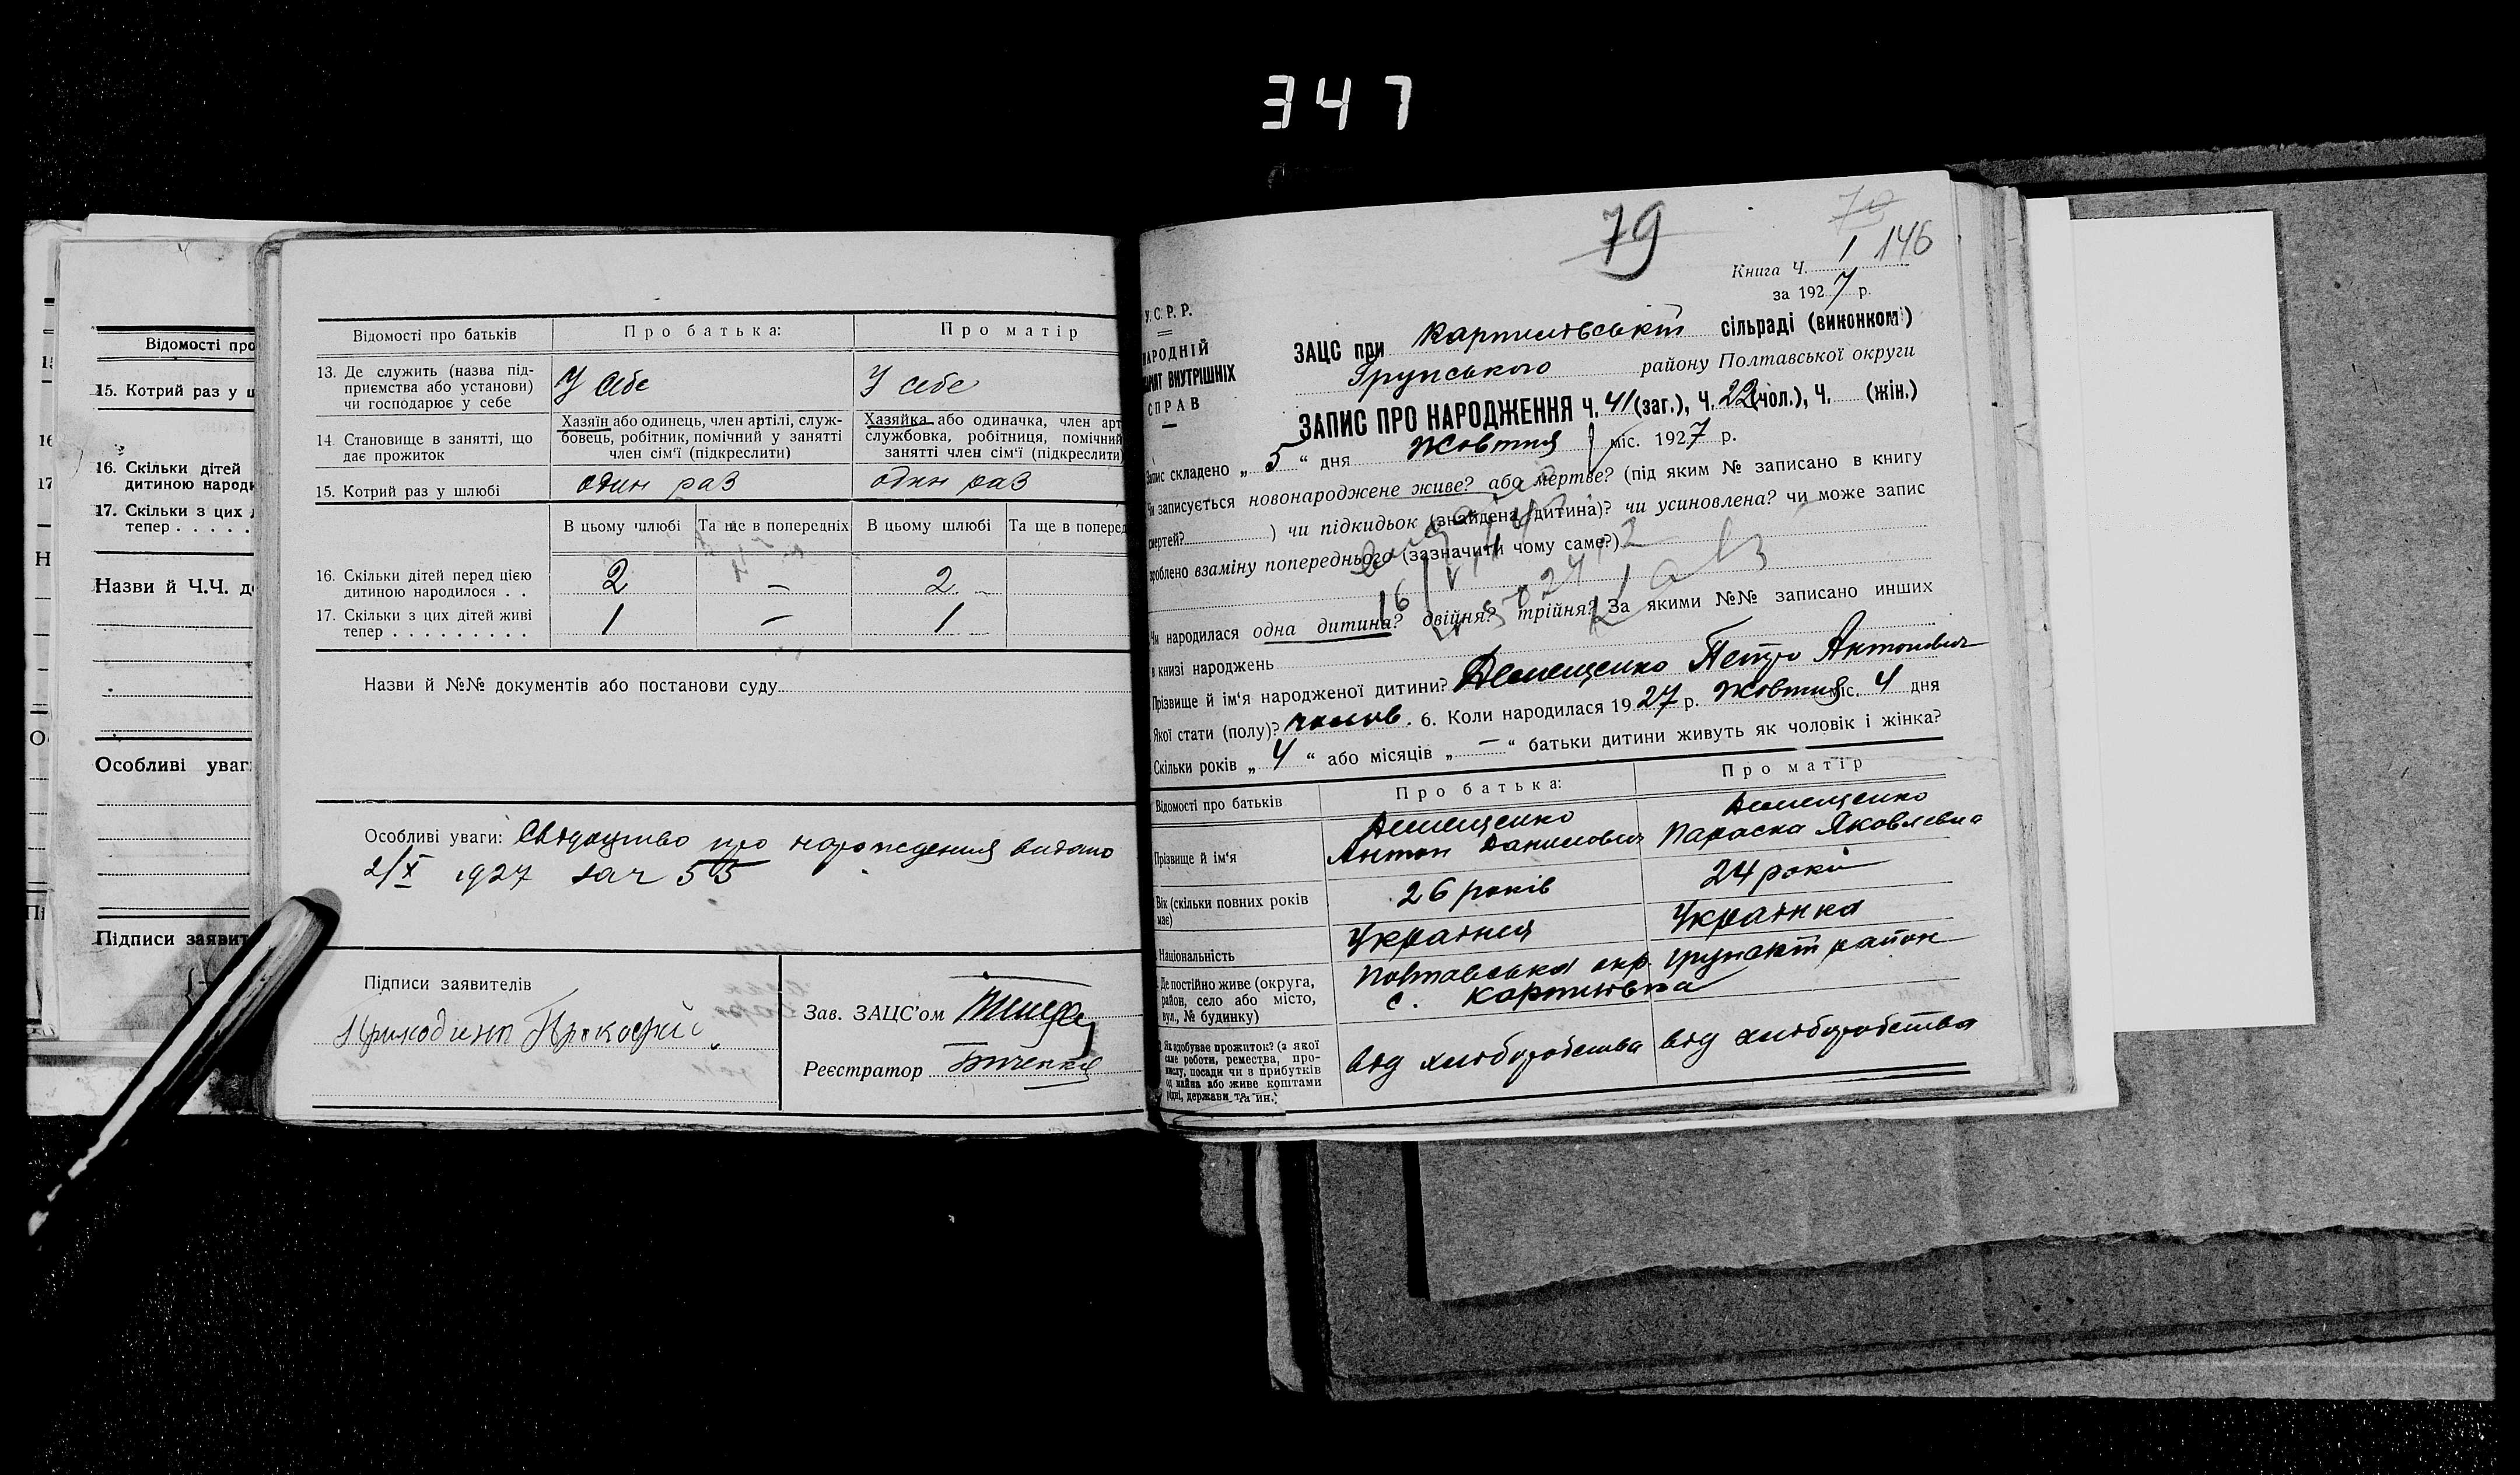 347
Відомості про
15. Котрий раз у ш
16. Скільки дітей
дитиною народи
17. Скільки з цих
тепер . . . . .
Назви й Ч.Ч. д
Особливі уваг
Підписи заявит
Відомості про батьків
Про батька:
Про матір
13. Де служить (назва під-
приємства або установи)
чи господарює у себе
У себе
У себе
14. Становище в занятті, що
дає прожиток
Хазяїн або одинець, член артілі, служ-
бовець, робітник, помічний у занятті
член сім'ї (підкреслити)
Хазяйка або одиначка, член арт
службовка, робітниця, помічний
занятті член сім'ї (підкреслити)
15. Котрий раз у шлюбі
один раз
один раз
В цьому шлюбі
Та ще в попередніх
В цьому шлюбі
Та ще в поперед
16. Скільки дітей перед цією
дитиною народилося . .
2 – 2
17. Скільки з цих дітей живі
тепер . . . . . . . . .
1 – 1
Назви й №№ документів або постанови суду
Особливі уваги: Свідоцтво про народження видано
2/X 1927 за ч 55
Підписи заявителів
Приходько Прокофий
Зав. ЗАЦС'ом
Реєстратор
79
79
146
Книга Ч. 1
за 1927 р.
У.С.Р.Р.
НАРОДНІЙ
АРІЯТ ВНУТРІШНІХ
СПРАВ
ЗАЦС при Карпилівській сільраді (виконком)
Грунського району Полтавської округи
ЗАПИС ПРО НАРОДЖЕННЯ Ч. 41 (заг.), Ч. 22 (чол.), Ч. (жін.)
Запис складено „ 5 “ дня Жовтня міс. 1927 р.
Чи записується новонароджене живе? або мертве? (під яким № записано в книгу
смертей? ) чи підкидьок (знайдена дитина)? чи усиновлена? чи може запис
зроблено взаміну попереднього (зазначити чому саме?)
Чи народилася одна дитина? двійня? трійня? За якими №№ записано инших
в книзі народжень
Прізвище й ім'я народженої дитини? Демещенко Петро Антонович
Якої стати (полу)? чолов. 6. Коли народилася 1927 р. жовтня міс. 4 дня
Скільки років „ 4 “ або місяців „ – “ батьки дитини живуть як чоловік і жінка?
Відомості про батьків
Про батька:
Про матір
Прізвище й ім'я
Демещенко
Антон Данилович
Демещенко
Параска Яковлевна
Вік (скільки повних років
має)
26 років
24 роки
Національність
Українец
Українка
Де постійно живе (округа,
район, село або місто,
вул., № будинку)
Полтавська окр. грунский район
с. Карпилівка
Як здобуває прожиток? (з якої
саме роботи, ремества, про-
мислу, посади чи в прибутків
од майна або живе коштами
рідні, держави та ин.)
від хліборобства
від хліборобства